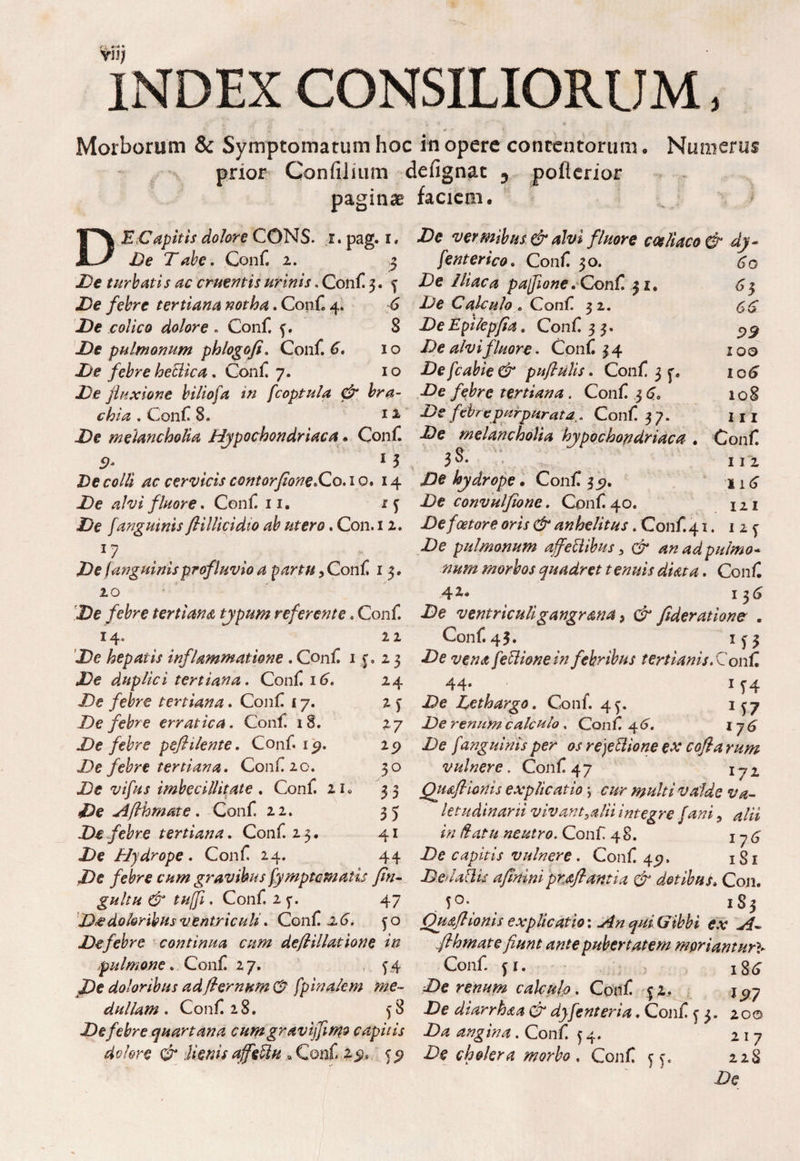 viij
INDEX CONSILIORUM,
Morborum & Symptomatum hoc in opere contentorum. Numerus
prior Consilium designat, posterior
paginæ faciem.
DE Capitis dolore CONS. 1. pag. 1.
De Tabe. Conf. 2. 3
De turbatis ac cruentis urinis. Conf. 3. 5
De febre tertiana notha. Conf. 4. 6
De colico dolore. Conf. 5. 8
De pulmonum phlogosi. Conf. 6. 10
De febre hectica. Conf. 7. 10
De fluxione biliosa in scoptula & bra-
chia. Conf. 8. 12
De melancholia Hypochondriaca. Conf.
9. 13
De colli ac cervicis contorsione. Co. 10. 14
De alvi fluore. Conf. 11. 15
De sanguinis stillicidio ab utero. Con. 12.
17
De sanguinis profluvio a partu, Conf. 13.
20
De febre tertiana typum referente. Conf.
14. 22
De hepatis inflammatione. Conf. 15. 23
De duplici tertiana. Conf. 16. 24
De febre tertiana. Conf. 17. 25
De febre erratica. Conf. 18. 27
De febre pestilente. Conf. 19. 29
De febre tertiana. Conf. 20. 30
De visus imbecillitate. Conf. 21. 33
De Asthmate. Conf. 22. 35
De febre tertiana. Conf. 23. 41
De Hydrope. Conf. 24. 44
De febre cum gravibus symptomatis sin-
gultu & tussi. Conf. 25. 47
De doloribus ventriculi. Conf. 26. 50
De febre continua cum destillatione in
pulmone. Conf. 27. 54
De doloribus ad sternum & spinalem me-
dullam. Conf. 28. 58
De febre quartana cum gravissimo capitis
dolore & lienis affectu. Conf. 29. 59
De vermibus & alvi fluore cœliaco & dy-
senterico. Conf. 30. 60
De Iliaca passione. Conf. 31. 63
De Calculo. Conf. 32. 66
De Epilepsia. Conf. 33. 99
De alvi fluore. Conf. 34 100
De scabie & pustulis. Conf. 35. 106
De febre tertiana. Conf. 36. 108
De febre purpurata. Conf. 37. 111
De melancholia hypochondriaca. Conf.
38. 112
De hydrope. Conf. 39. 116
De convulsione. Conf. 40. 121
De fœtore oris & anhelitus. Conf. 41. 125
De pulmonum affectibus, & an ad pulmo-
num morbos quadret tenuis diæta. Conf.
42. 136
De ventriculi gangræna, & sideratione.
Conf. 43. 153
De venæ sectione in febribus tertianis. Conf.
44. 154
De Lethargo. Conf. 45. 157
De renum calculo. Conf. 46. 176
De sanguinis per os rejectione ex costarum
vulnere. Conf. 47 172
Quæstionis explicatio; cur multi valde va-
letudinarii vivant, alii integre sani, alii
in statu neutro. Conf. 48. 176
De capitis vulnere. Conf. 49. 181
De lactis asinini præstantia & dotibus. Con.
50. 183
Quæstionis explicatio: An qui Gibbi ex A-
sthmate fiunt ante pubertatem moriantur?
Conf. 51. 186
De renum calculo. Conf. 52. 197
De diarrhæa & dysenteria. Conf. 53. 200
Da angina. Conf. 54. 217
De cholera morbo. Conf. 55. 228
De